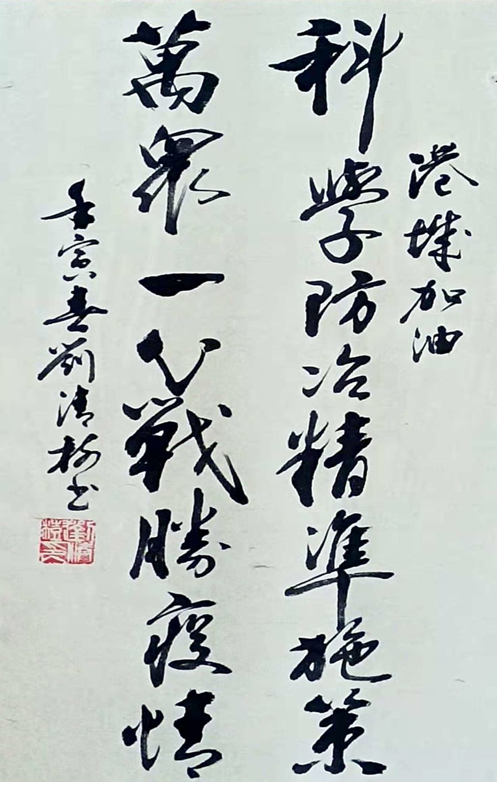 港城加油
科學防治精準施策
萬眾一心戰勝疫情
壬寅春劉清樹書